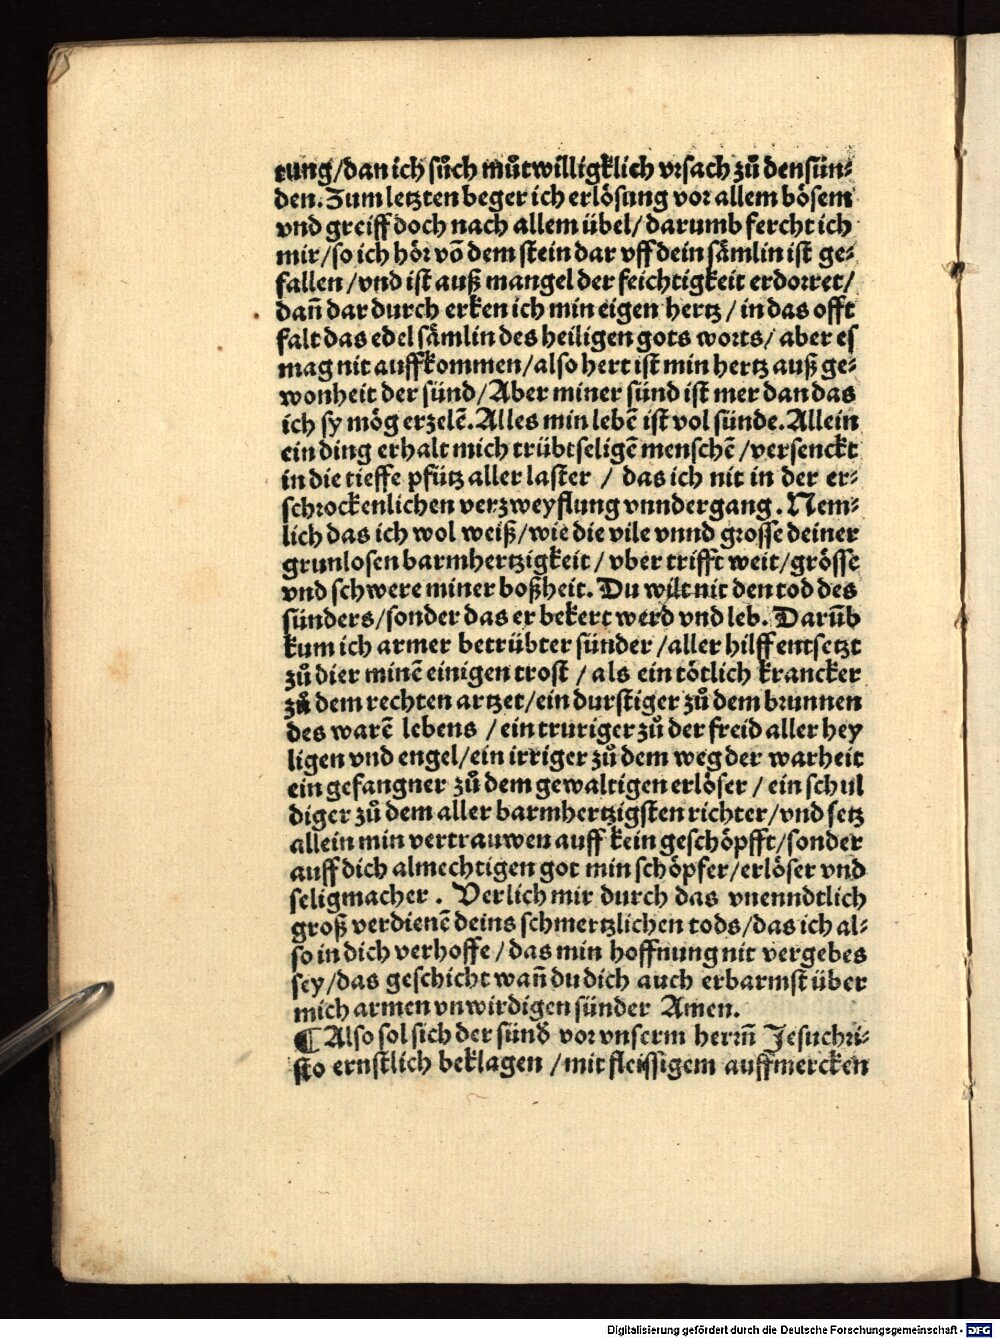 tung/dan ich sůch můtwilligklich vrsach zů den sün⸗
den. Zum letzten beger ich erlösung vor allem bösem
vnd greiff doch nach allem übel/darumb fercht ich
mir/so ich hör võ dem stein dar vff dein sämlin ist ge⸗
fallen/vnd ist auß mangel der feichtigkeit erdorret/
dañ dar durch erken ich min eigen hertz/in das offt
falt das edel sämlin des heiligen gots worts/aber es
mag nit auffkommen/also hert ist min hertz auß ge⸗
wonheit der sünd/Aber miner sünd ist mer dan das
ich sy mög erzelẽ. Alles min lebẽ ist vol sünde. Allein
ein ding erhalt mich trübtseligẽ menschẽ/versenckt
in die tieffe pfütz aller laster / das ich nit in der er⸗
schrockenlichen verzweyflung vnndergang. Nem⸗
lich das ich wol weiß/wie die vile vnnd grosse deiner
grunlosen barmhertzigkeit/vber trifft weit/grösse
vnd schwere miner boßheit. Du wilt nit den tod des
sünders/sonder das er bekert werd vnd leb. Darũb
kum ich armer betrübter sünder/aller hilff entsetzt
zů dier minẽ einigen trost/als ein tötlich krancker
zů dem rechten artzet/ein durstiger zů dem brunnen
des warẽ lebens /ein truriger zů der freid aller hey
ligen vnd engel/ein irriger zů dem weg der warheit
ein gefangner zů dem gewaltigen erlöser/ein schul
diger zů dem aller barmhertzigsten richter/vnd setz
allein min vertrauwen auff kein geschöpfft/sonder
auff dich almechtigen got min schöpfer/erlöser vnd
seligmacher. Verlich mir durch das vnenndtlich
groß verdienẽ deins schmertzlichen tods/das ich al⸗
so in dich verhoffe/das min hoffnung nit vergebes
sey/das geschicht wañ du dich auch erbarmst über
mich armen vnwirdigen sünder Amen.
¶ Also sol sich der sünd̄ vor vnserm herrñ Jesu chri⸗
sto ernstlich beklagen /mit fleissigem auffmercken
Digitalisierung gefördert durch die Deutsche Forschungsgemeinschaft - DFG